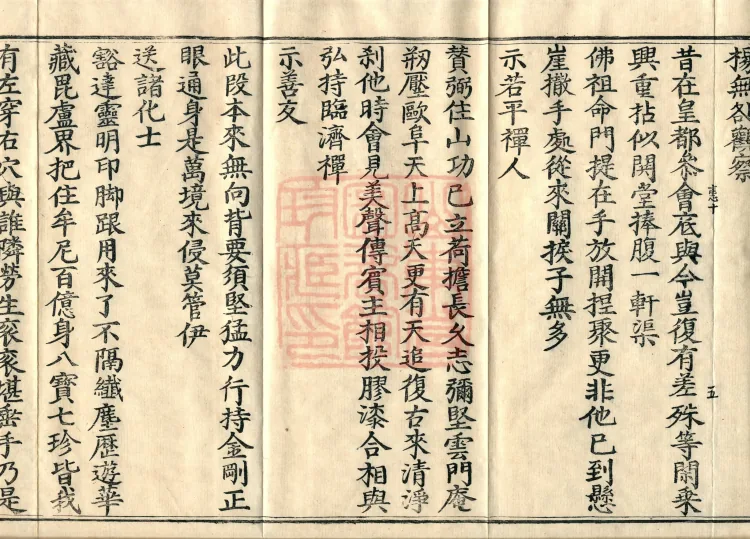 揚無各觀察
昔在皇都叅會底與今豈復有差殊等閑乗
興重拈似開堂捧腹一軒渠
佛祖命門提在手放開捏聚更非他已到懸
崖撒手處從來關捩子無多
示若平禪人
贊弼住山功已立荷擔長久志彌堅雲門庵
剏壓歐阜天上髙天更有天追復右來清淨
刹他時會見美聲傳賓主相投膠漆合相與
弘持臨濟禪
示善友
此段本來無向背要須堅猛力行持金剛正
眼通身是萬境來侵莫管伊
送諸化士
豁達靈明印脚跟用來了不隔纖塵歴遊華
藏毘盧界把住牟尼百億身八寶七珍皆我
有左穿右穴與誰隣勞生衮衮堪垂手乃是
憲十
五